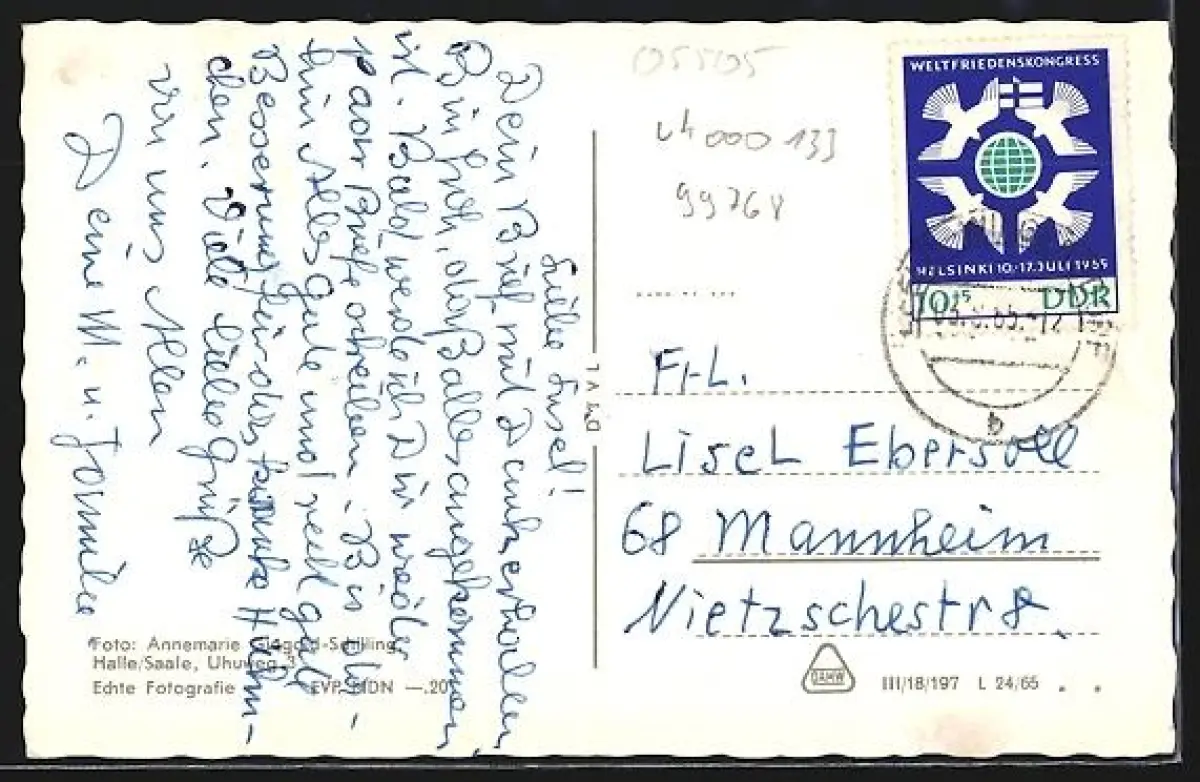 Liebe Lisel!
Dein Brief mit Dank erhalten,
Bin froh, daß alles angekommen
ist. Bald werde ich Dir wieder
paar Briefe schreiben. Bis da-
hin Alles gute und recht gute
Besserung für das kranke Hähn-
chen. Viele liebe Grüße
von uns Allen
Deine M. u. Familie
Foto: Annemarie Giegold-Schilling
Halle/Saale, Uhuweg 3
Echte Fotografie EVP MDN —.20
05505
uh 000 133
99768
WELTFRIEDENSKONGRESS
HELSINKI 10.-17. JULI 1965
10+5 DDR
b
Frl.
Lisel Ebersoll
68 Mannheim
Nietzschestr 8.
DAHW
III/18/197 L 24/65